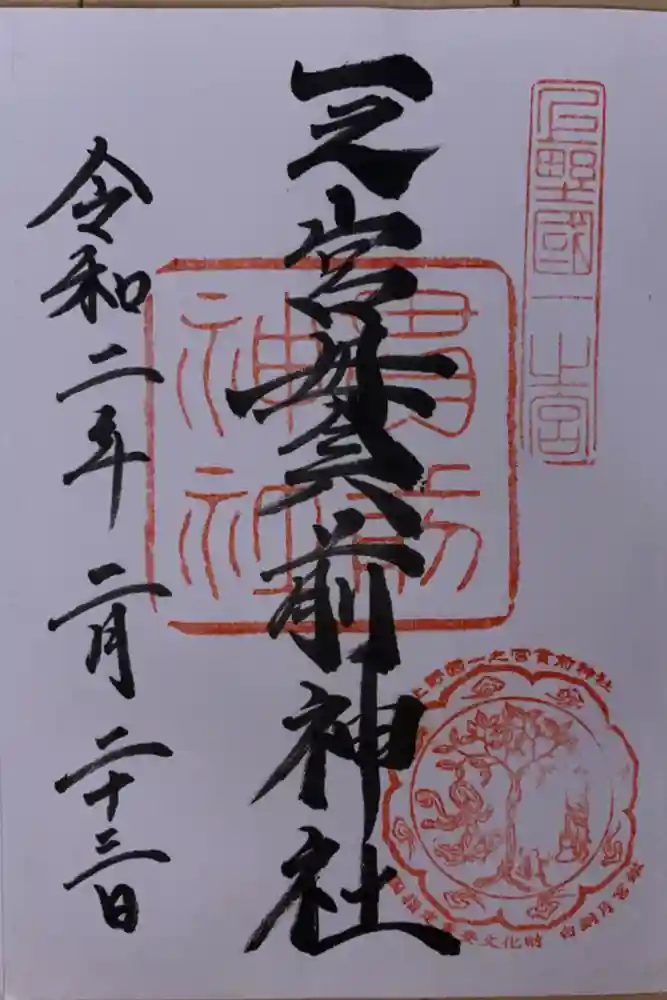 上野國一之宮
一之宮貫前神社
貫前
神社
令和二年二月二十三日
上野國一之宮貫前神社
重要文化財 白銅月宮鑑